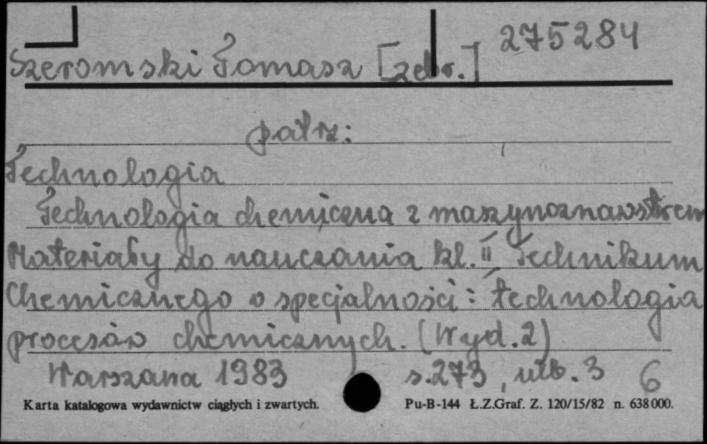 275284
Szeromski Tomasz [zebr.]
patrz:
Technologia
Technologia chemiczna z maszynoznawstwem
Materiały do nauczania kl. II Technikum
Chemicznego o specjalności: technologia
procesów chemicznych. (Wyd. 2)
Warszawa 1983 s. 273, nlb. 3 6
Karta katalogowa wydawnictw ciągłych i zwartych. Pu-B-144 Ł.Z.Graf. Z. 120/15/82 n. 638 000.